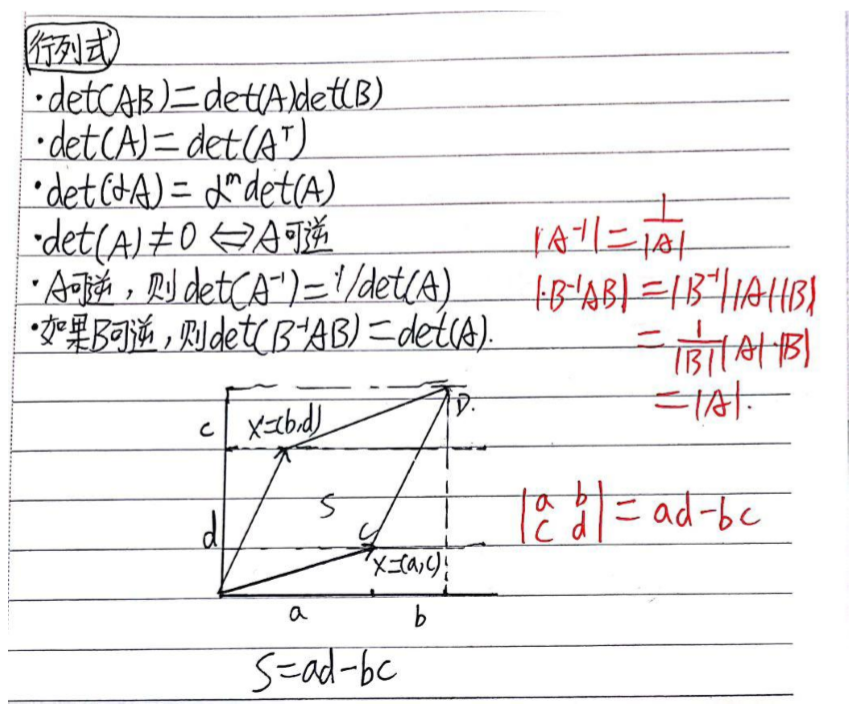 行列式
·det(AB)=det(A)det(B)
·det(A)=det(Aᵀ)
·det(αA)=αⁿdet(A)
·det(A)≠0⇔A可逆
·A可逆,则det(A⁻¹)=1/det(A)
·如果B可逆,则det(B⁻¹AB)=det(A).
|A⁻¹|=1/|A|
|B⁻¹AB|=|B⁻¹||A||B|
=1/|B||A|·|B|
=|A|.
c
X=(b,d)
D.
S
d
C
X=(a,c)
a
b
S=ad-bc
|a b|
|c d|=ad-bc